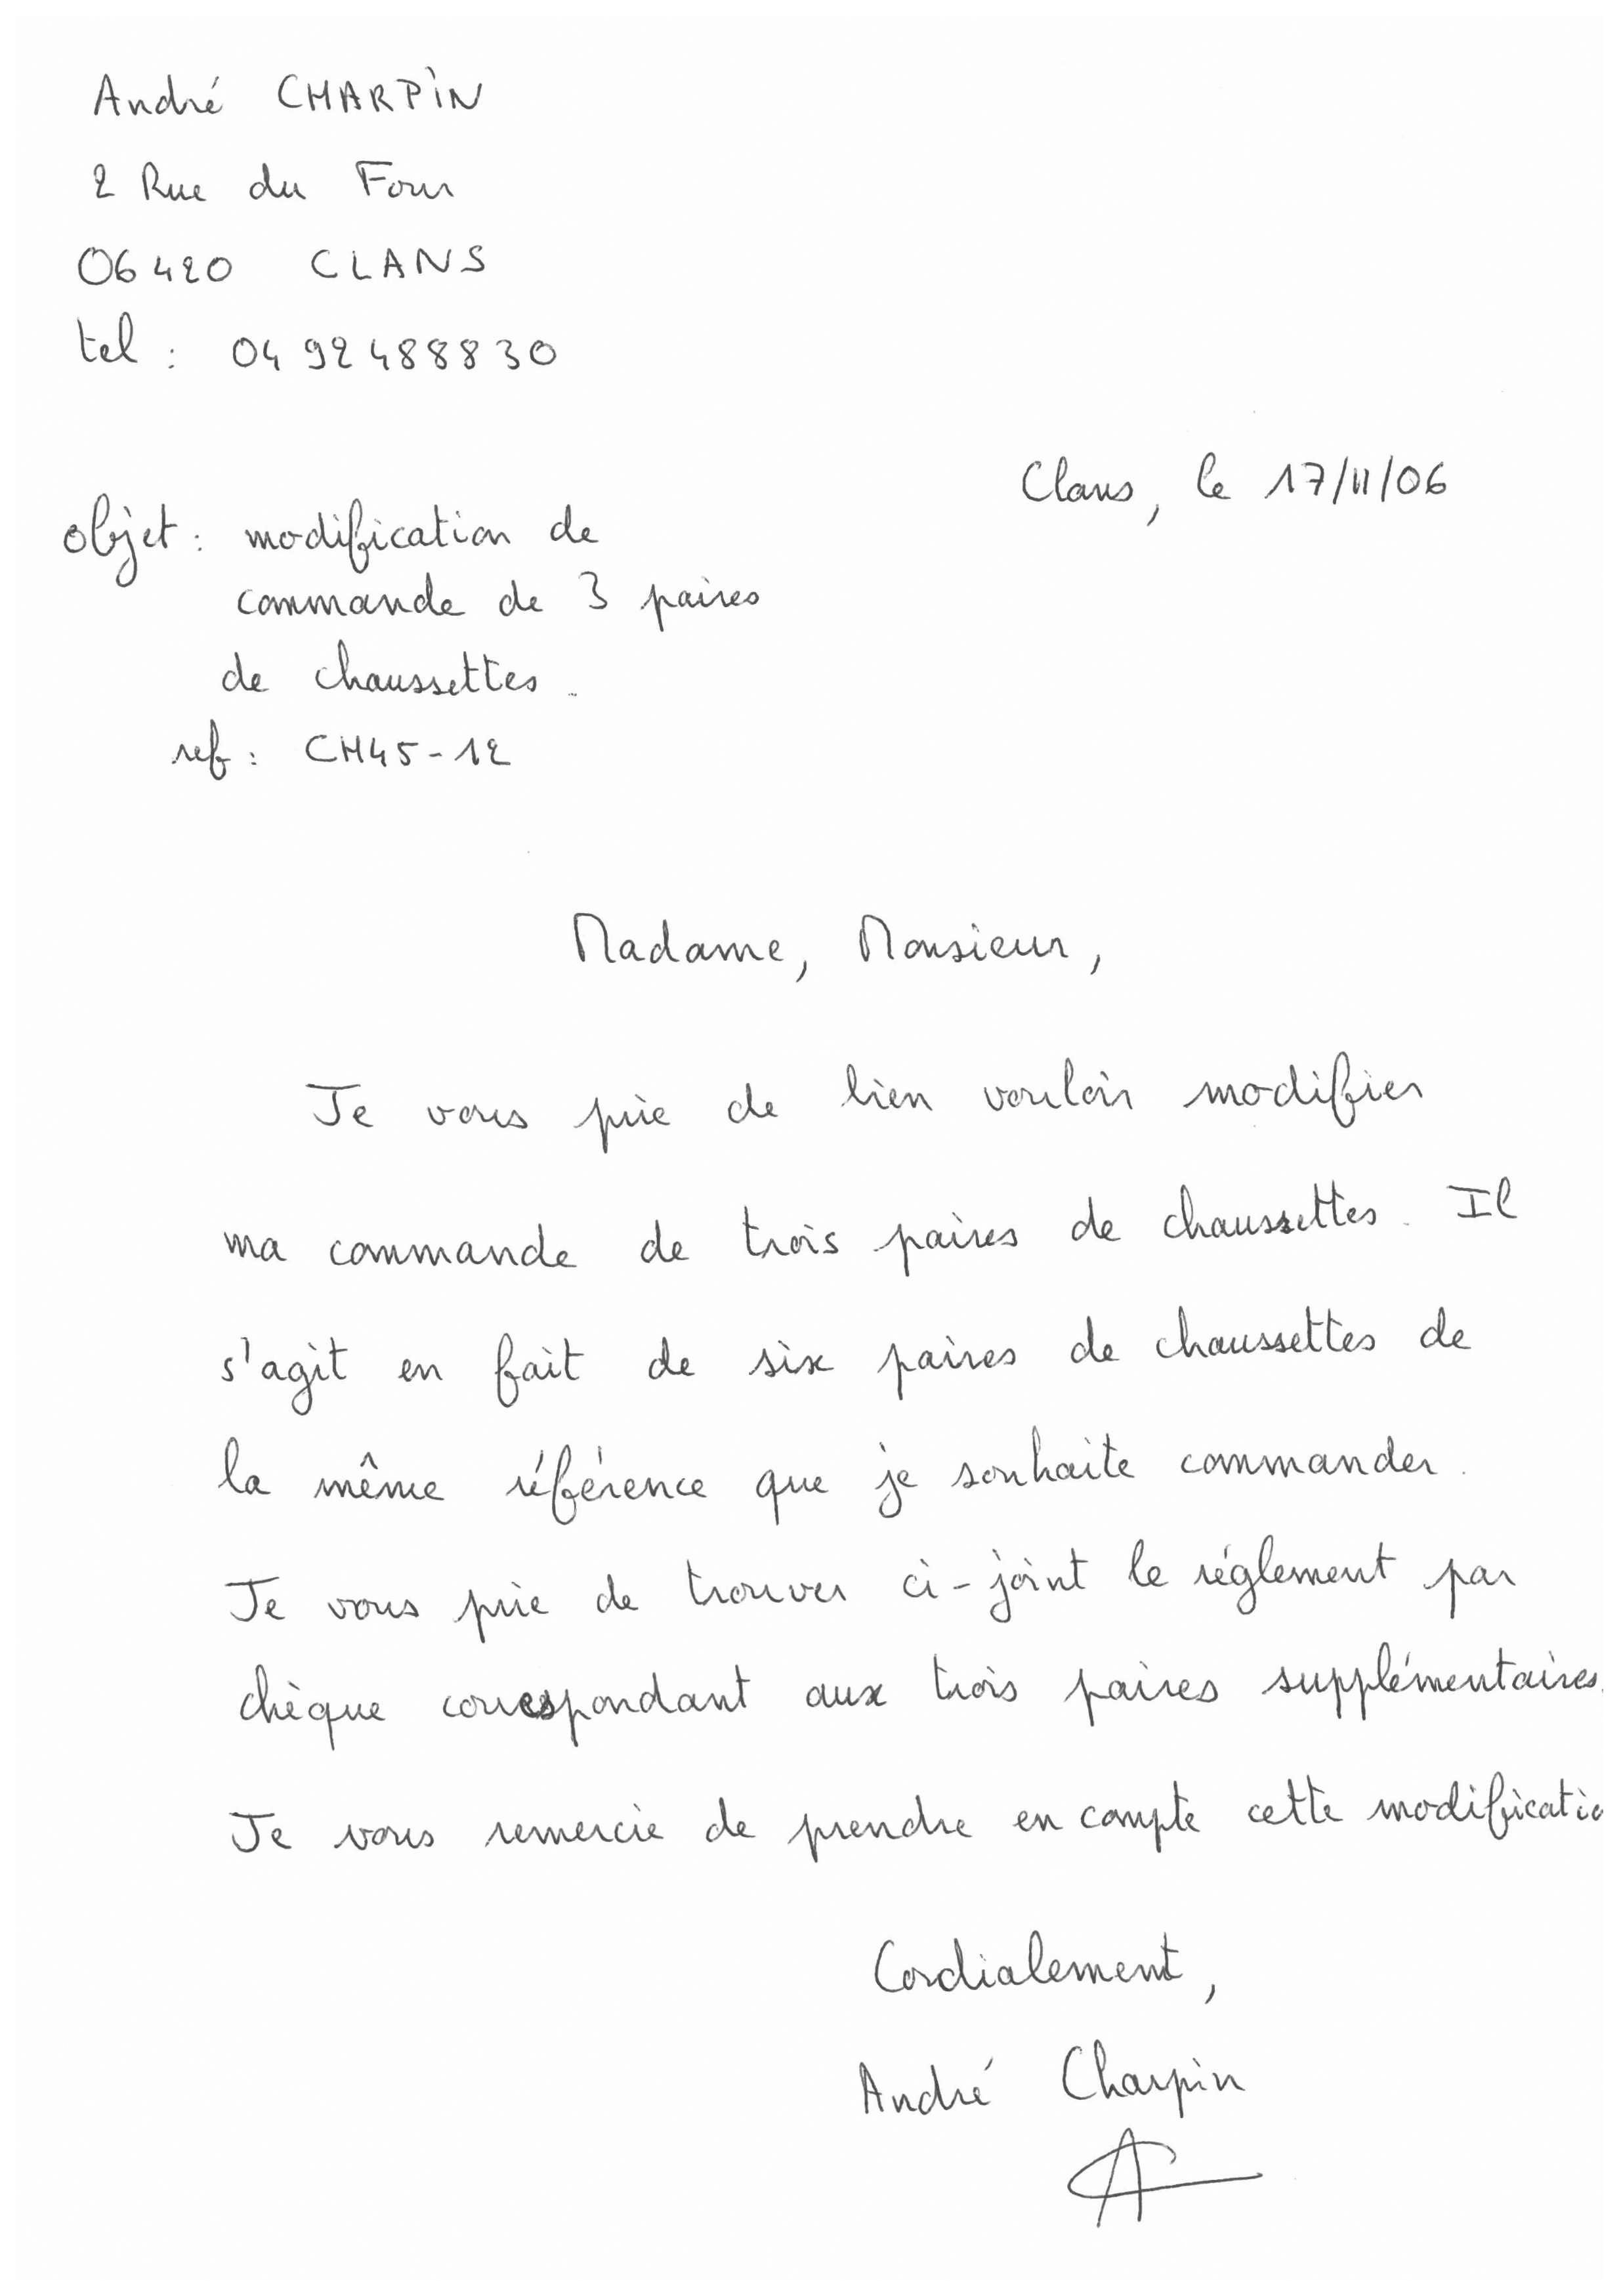 André CHARPIN
2 Rue du Four
06420 CLANS
tel : 0492488830
Clans, le 17/11/06
objet : modification de
commande de 3 paires
de chaussettes.
ref : CH45-12
Madame, Monsieur,
Je vous prie de bien vouloir modifier
ma commande de trois paires de chaussettes. Il
s'agit en fait de six paires de chaussettes de
la même référence que je souhaite commander.
Je vous prie de trouver ci-joint le réglement par
chèque correspondant aux trois paires supplémentaires.
Je vous remercie de prendre en compte cette modificatio
Cordialement,
André Charpin